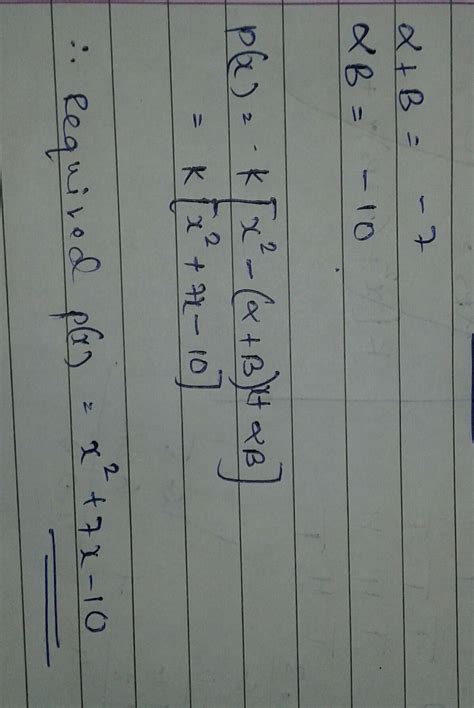 α+B = -7
αB = -10
p(x) = k[x² - (α+B)x + αB]
= k[x² + 7x - 10]
∴ Required p(x) = x² + 7x - 10